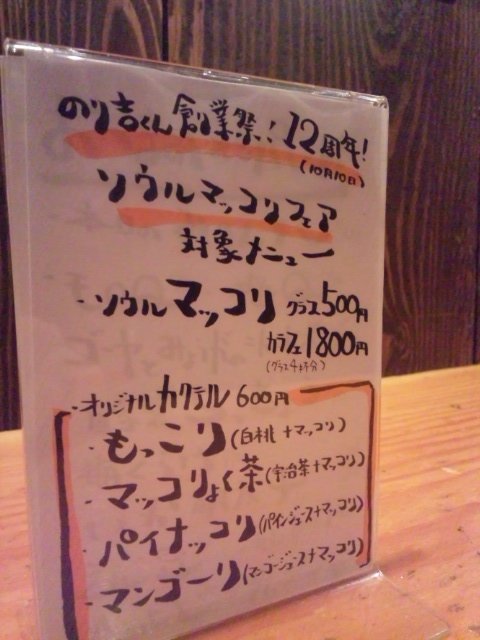 のり吉くん創業祭！12周年！
(10月10日)
ソウルマッコリフェア
対象メニュー
・ソウルマッコリ グラス500円
カラフェ1800円
(グラス4杯分)
・オリジナルカクテル 600円
・もっこり(白桃+マッコリ)
・マッコりょく茶(宇治茶+マッコリ)
・パイナッコリ(パインジュース+マッコリ)
・マンゴーリ(マンゴージュース+マッコリ)